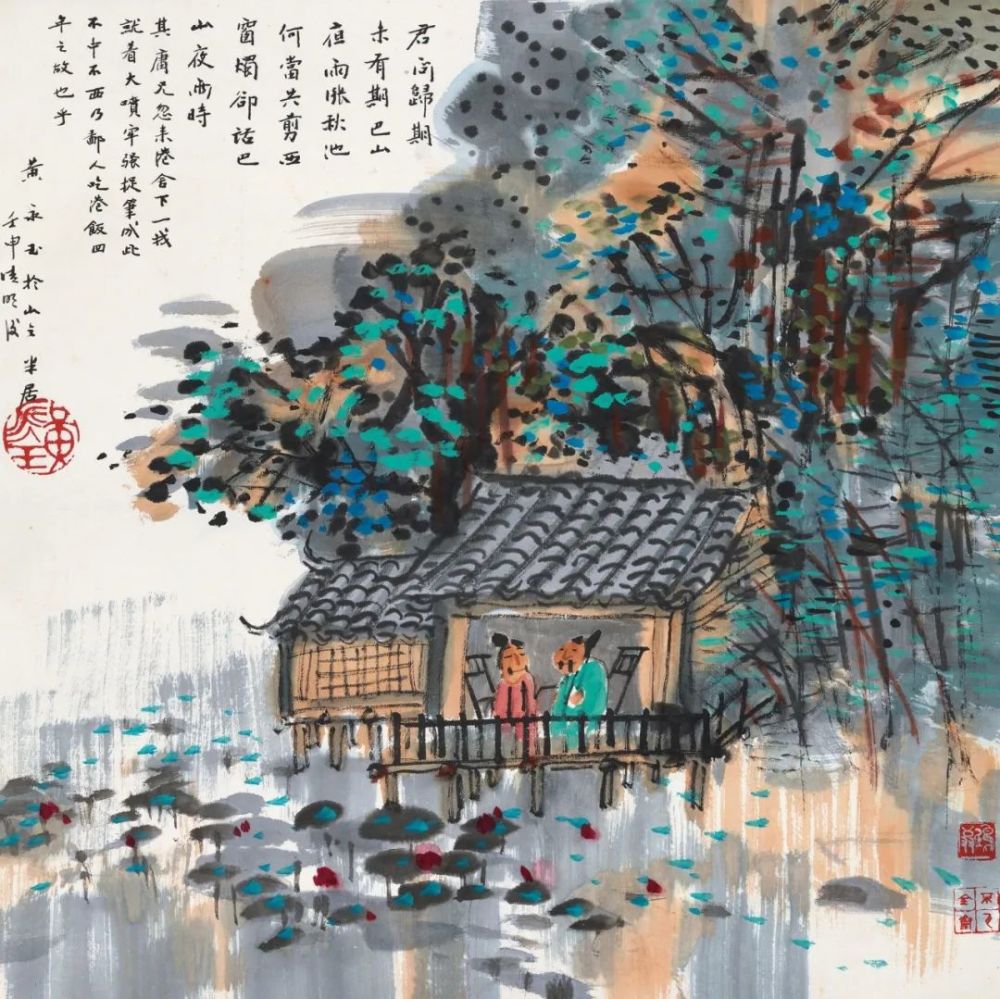 君问歸期
未有期巴山
夜雨漲秋池
何當共剪西
窗燭卻話巴
山夜雨時
其庸兄忽来港舍下一找
就着大噴牢强捉筆成此
不中不西乃鄙人吃港飯四
年之故也乎
黄永玉於山之半居
壬申清明後
黄永玉